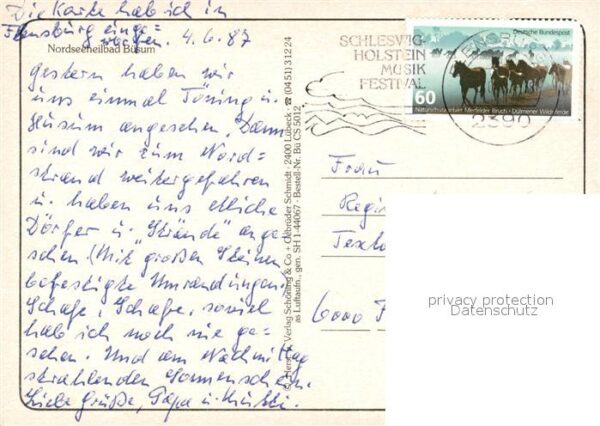 Die Karte hab ich in
Flensburg einge=
worfen. 4.6.87
Nordseeheilbad Büsum
gestern haben wir
uns einmal Töning u.
Husum angesehen. Dann
sind wir zum Nord=
strand weitergefahren
u. haben uns etliche
Dörfer u. "Strände" ange=
sehen (Mit großen Steinen
befestigte Umrandungen)
Schafe, Schafe, soviel
hab ich noch nie ge=
sehen. Und am Nachmittag
strahlenden Sonnenschein.
Liebe Grüße, Papa u. Mutti.
Verlag Schöning & Co + Gebrüder Schmidt · 2400 Lübeck · ☎ (0451) 31224
as Luftaufn., gen. SH 1-44067 · Bestell-Nr. Bü CS 5012
SCHLESWIG-
HOLSTEIN
MUSIK
FESTIVAL
Deutsche Bundespost
60
Naturschutzgebiet Merfelder Bruch · Dülmener Wildpferde
2390
Frau
Regi
Texto
6000 F
privacy protection
Datenschutz